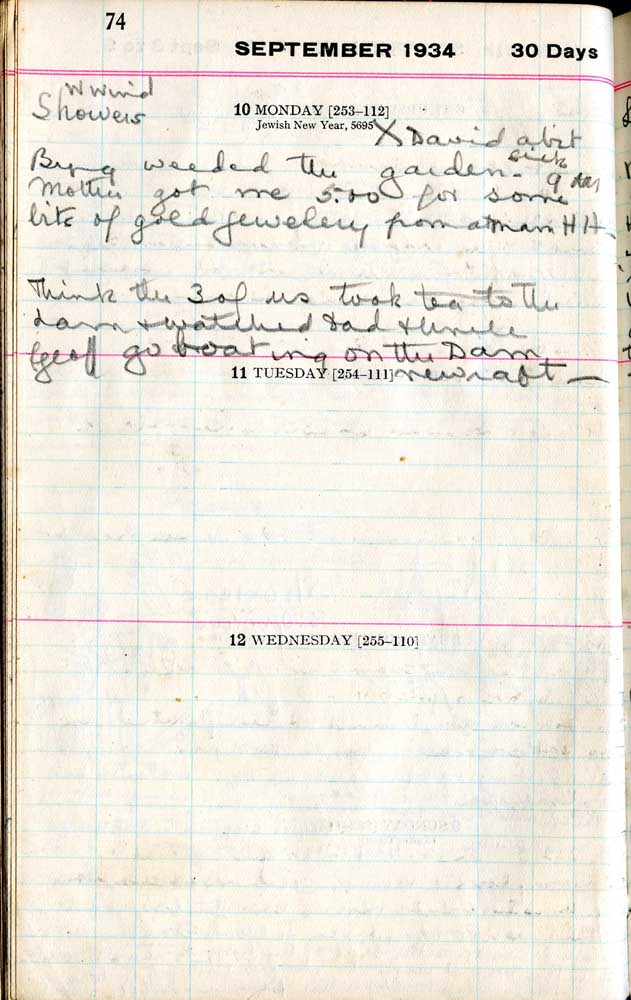 74
SEPTEMBER 1934 30 Days
W Wind
Showers
10 MONDAY [253–112]
Jewish New Year, 5695
X David a bit
sick
weeded the garden. 9
Mother got me 5.00 for some
bits of gold jewelery from a man H H.
Think the 3 of us took tea to the
dam & watched Dad & Uncle
Geoff go boating on the Dam
11 TUESDAY [254–111] new raft —
12 WEDNESDAY [255–110]